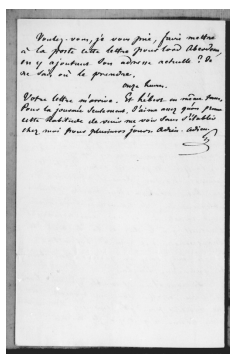 Voulez-vous, je vous prie, faire mettre
à la poste cette lettre pour lord Aberdeen,
en y ajoutant son adresse actuelle ? Je
ne sais où le prendre.
onze heures.
Votre lettre m'arrive. Et hébert en même temps,
Pour la journée seulement. J'aime assez qu'on prenne
cette habitude de venir me voir sans s'établir
chez moi pour plusieurs jours. Adieu. Adieu.